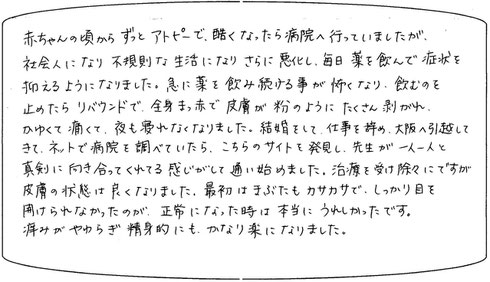 赤ちゃんの頃からずっとアトピーで、酷くなったら病院へ行っていましたが、
社会人になり不規則な生活になりさらに悪化し、毎日薬を飲んで症状を
抑えるようになりました。急に薬を飲み続ける事が怖くなり、飲むのを
止めたらリバウンドで、全身まっ赤で皮膚が粉のようにたくさん剥がれ、
かゆくて痛くて、夜も寝れなくなりました。結婚をして、仕事を辞め、大阪へ引越して
きて、ネットで病院を調べていたら、こちらのサイトを発見し、先生が一人一人と
真剣に向き合ってくれてる感じがして通い始めました。治療を受け除々にですが
皮膚の状態は良くなりました。最初はまぶたもカサカサで、しっかり目を
開けられなかったのが、正常になった時は本当にうれしかったです。
痒みがやわらぎ精身的にも、かなり楽になりました。